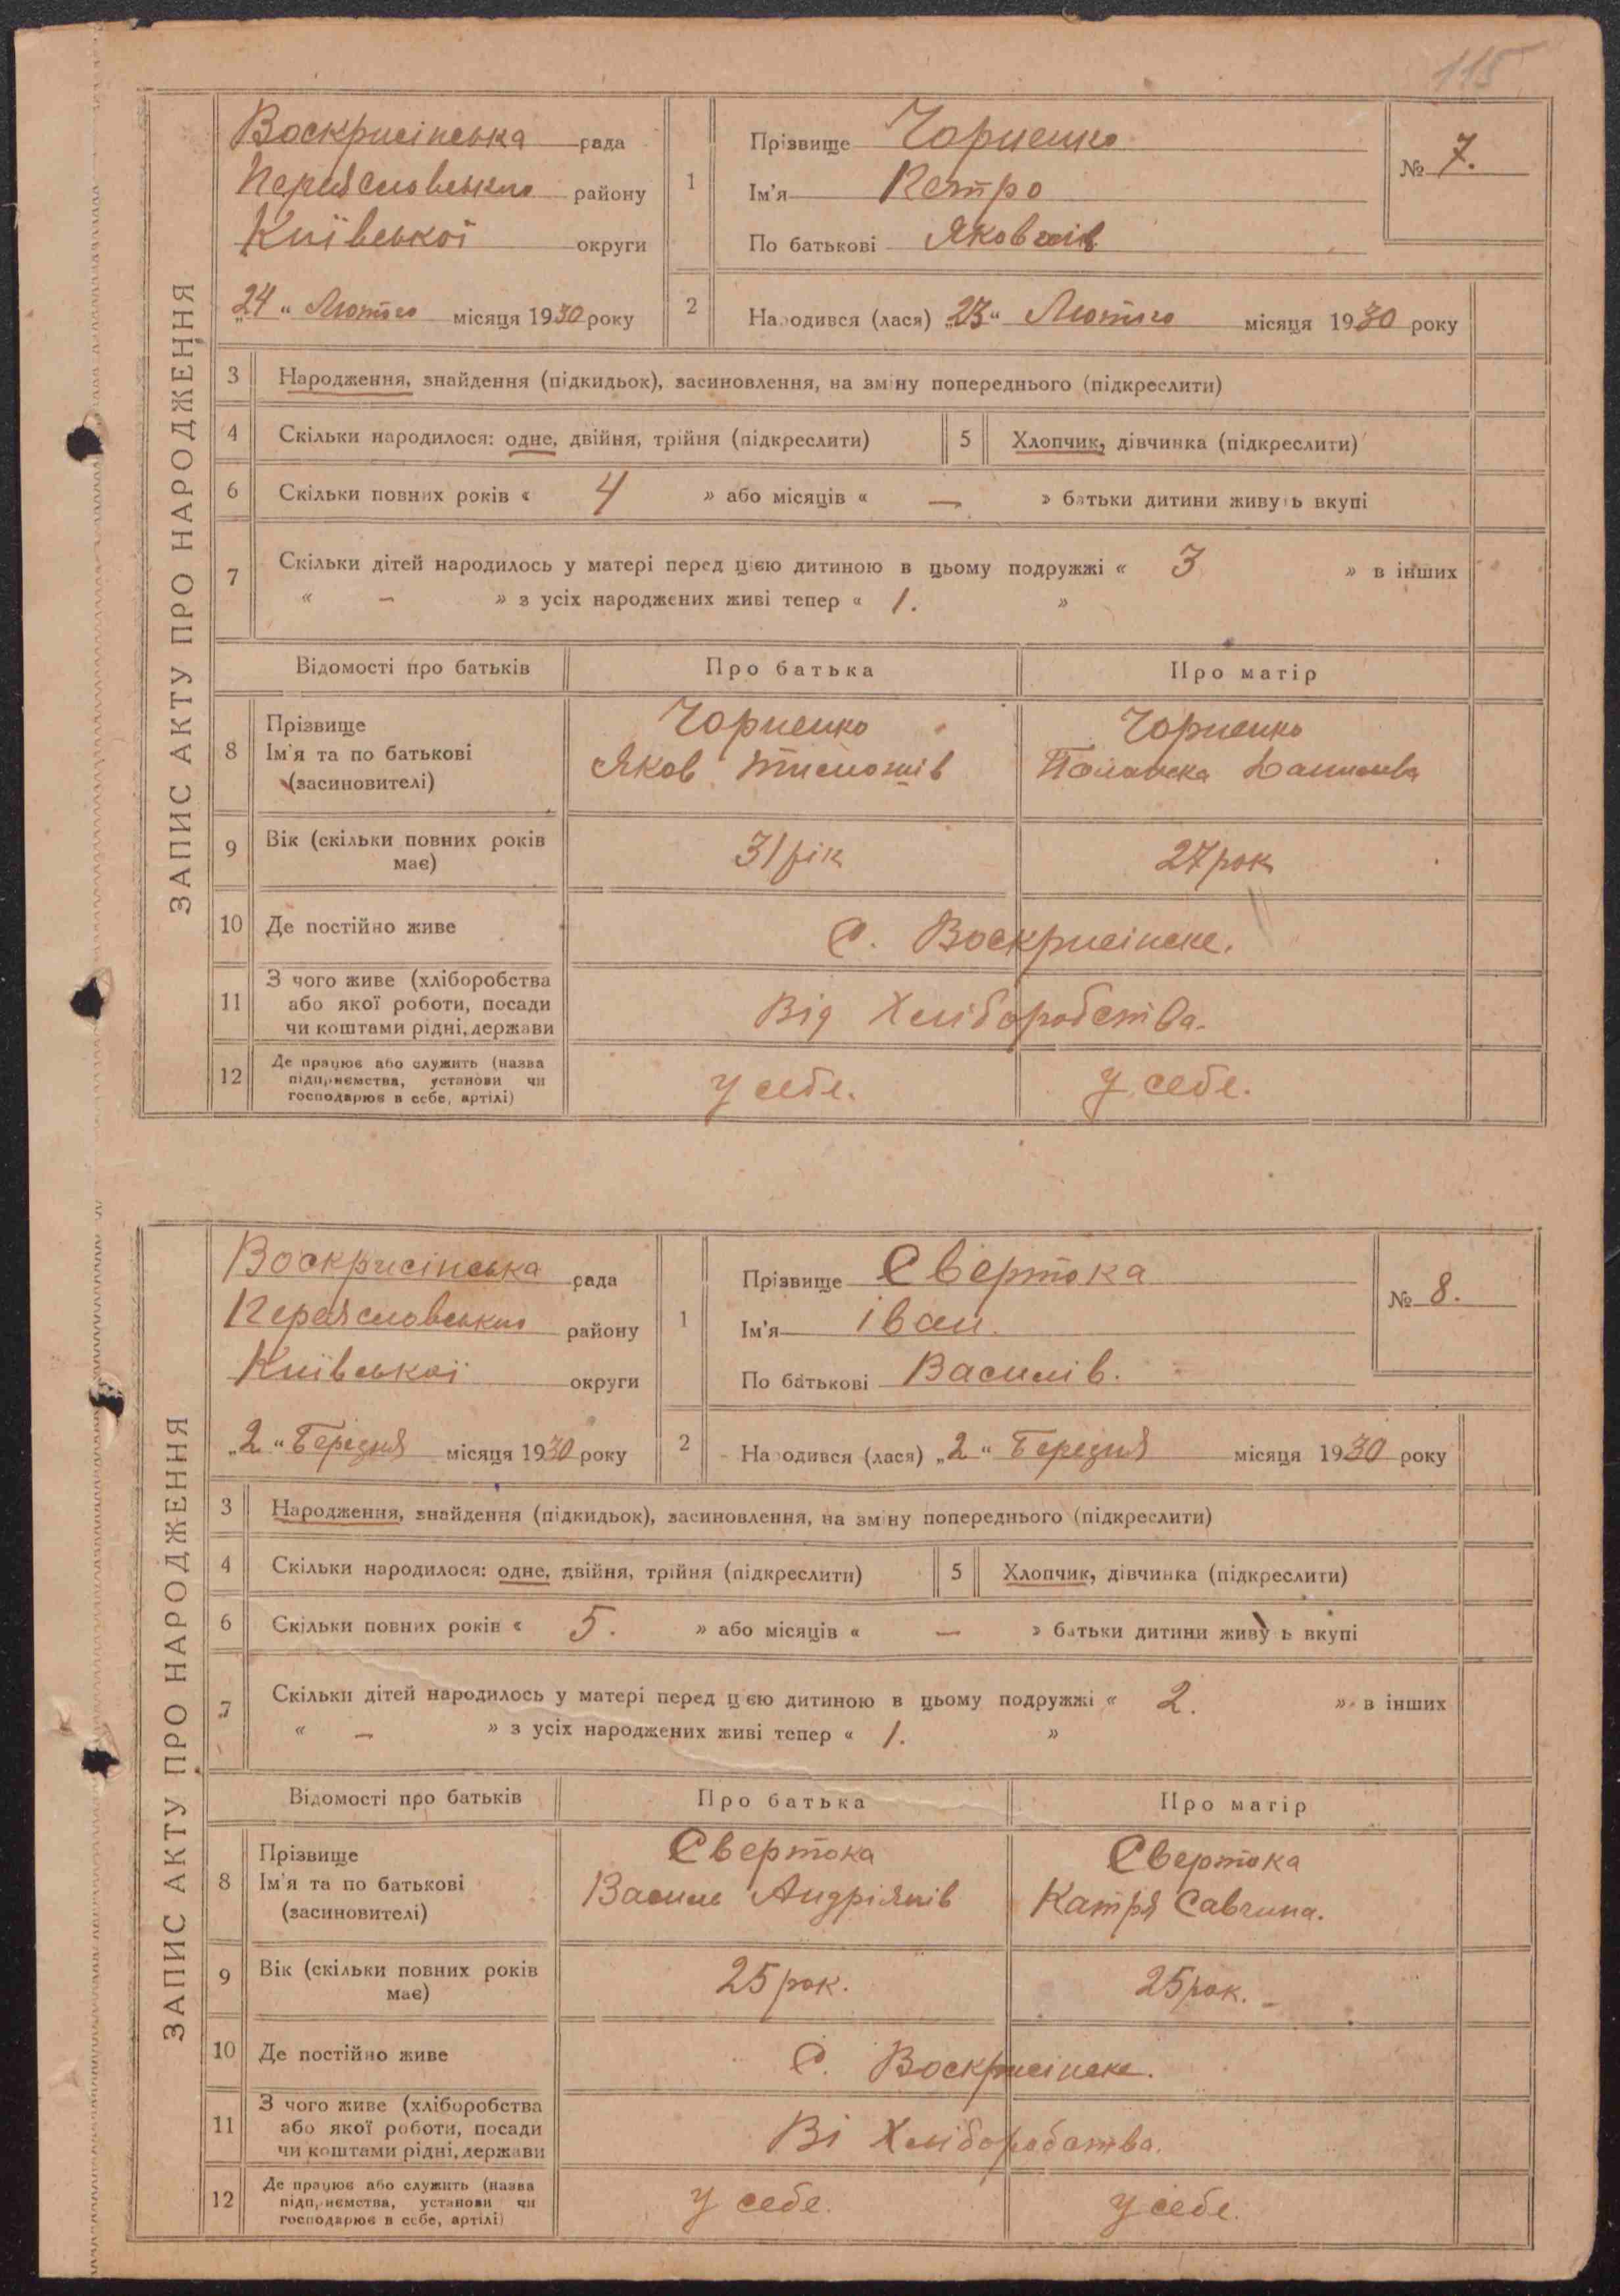 115
ЗАПИС АКТУ ПРО НАРОДЖЕННЯ
Воскрисінська рада
Переяславського району
Київської округи
„24“ Лютого місяця 1930 року
1
Прізвище Чорненко
Ім'я Петро
По батькові Яковлів
№ 7.
2 Народився (лася) „23“ Лютого місяця 1930 року
3 Народження, знайдення (підкидьок), засиновлення, на зміну попереднього (підкреслити)
4 Скільки народилося: одне, двійня, трійня (підкреслити) 5 Хлопчик, дівчинка (підкреслити)
6 Скільки повних років « 4 » або місяців « — » батьки дитини живуть вкупі
7 Скільки дітей народилось у матері перед цією дитиною в цьому подружжі « 3 » в інших
« – » з усіх народжених живі тепер « 1. »
Відомості про батьків Про батька Про матір
8 Прізвище
Ім'я та по батькові
(засновителі)
Чорненко
Яков
Чорненко
9 Вік (скільки повних років
має)
31 рік 27 рок
10 Де постійно живе С. Воскрисінске.
11 З чого живе (хліборобства
або якої роботи, посади
чи коштами рідні, держави
Від Хліборобства.
12 Де працює або служить (назва
підприємства, установи чи
господарює в себе, артілі)
у себе. у себе.
ЗАПИС АКТУ ПРО НАРОДЖЕННЯ
Воскрисінська рада
Переяславського району
Київської округи
„2“ Березня місяця 1930 року
1
Прізвище Свертока
Ім'я іван.
По батькові Василів.
№ 8.
2 Народився (лася) „2“ Березня місяця 1930 року
3 Народження, знайдення (підкидьок), засиновлення, на зміну попереднього (підкреслити)
4 Скільки народилося: одне, двійня, трійня (підкреслити) 5 Хлопчик, дівчинка (підкреслити)
6 Скільки повних років « 5. » або місяців « — » батьки дитини живуть вкупі
7 Скільки дітей народилось у матері перед цією дитиною в цьому подружжі « 2. » в інших
« – » з усіх народжених живі тепер « 1. »
Відомості про батьків Про батька Про матір
8 Прізвище
Ім'я та по батькові
(засиновителі)
Свертока
Василь Андріянів
Свертока
Катря Савчина.
9 Вік (скільки повних років
має)
25 рок. 25 рок.
10 Де постійно живе С. Воскрисінске.
11 З чого живе (хліборобства
або якої роботи, посади
чи коштами рідні, держави
Ві Хліборобства.
12 Де працює або служить (назва
підприємства, установи чи
господарює в себе, артілі)
у себе. у себе.